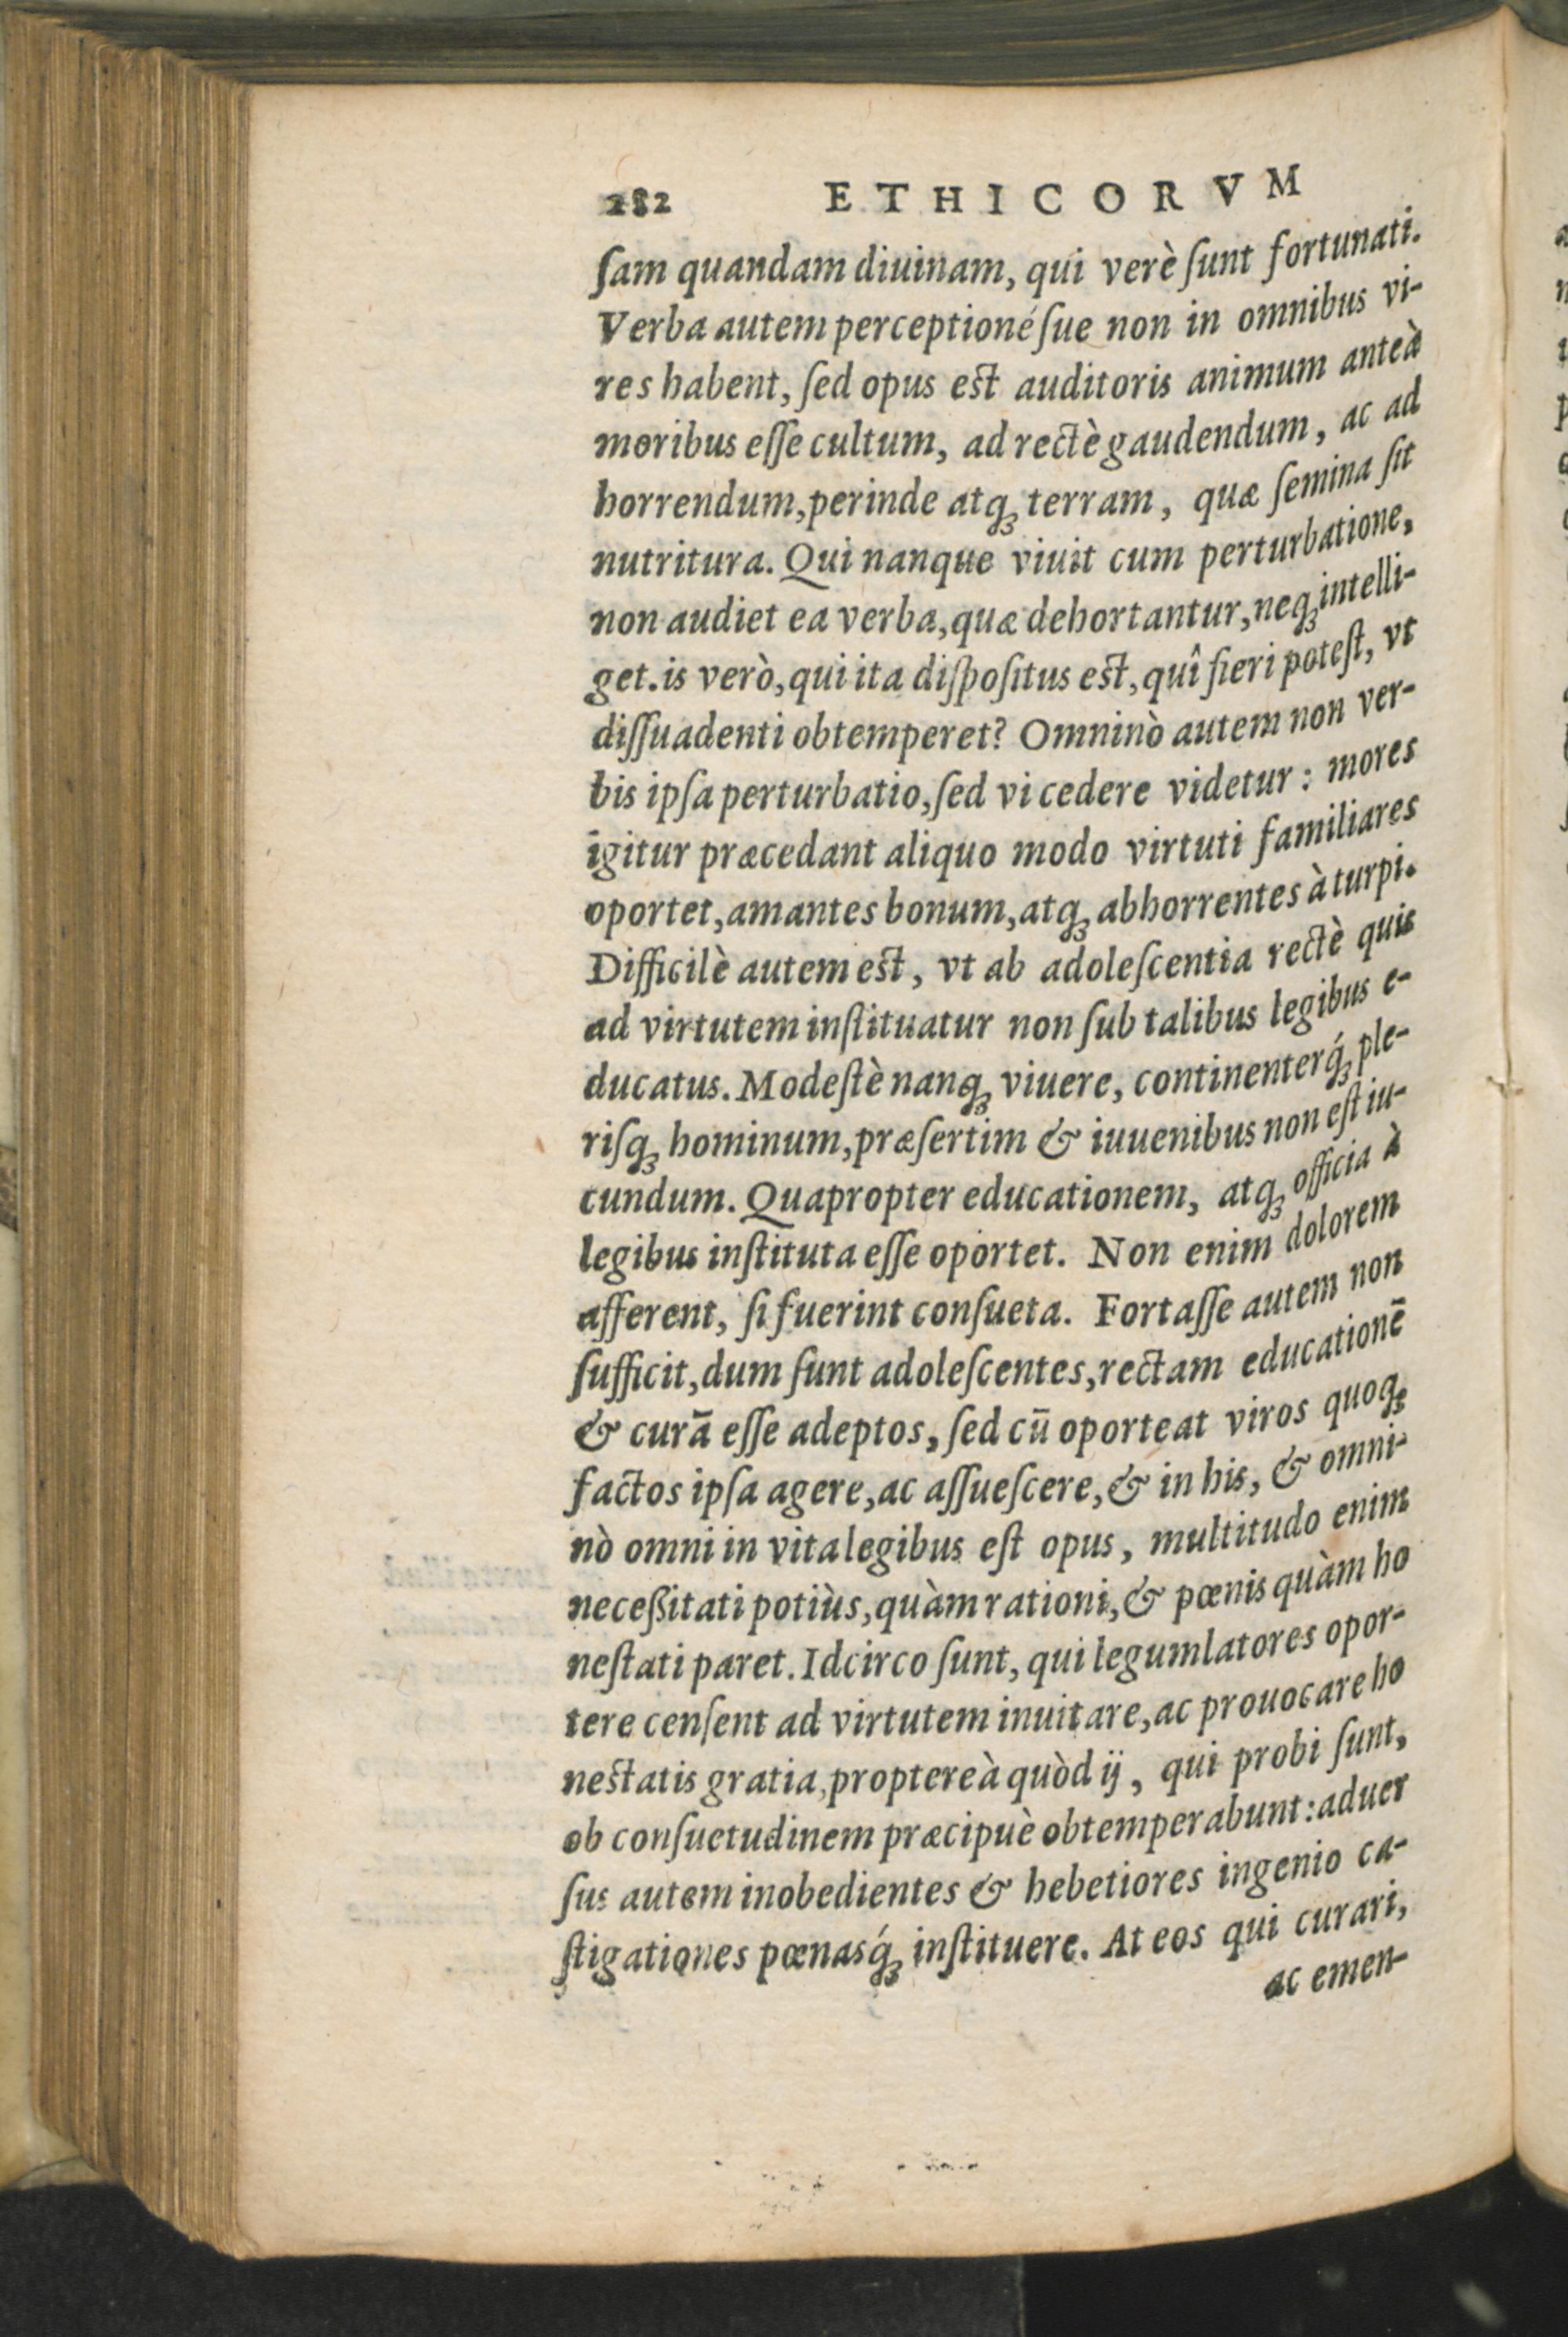 282 ETHICORVM
ſam quandam diuinam, qui verè ſunt fortunati.
Verba autem perceptionéſue non in omnibus vi-
res habent, ſed opus est auditoris animum anteà
moribus eſſe cultum, ad rectè gaudendum, ac ad
horrendum, perinde atq; terram, quæ ſemina ſit
nutritura. Qui nanque viuit cum perturbatione,
non audiet ea verba, quæ dehortantur, neq; intelli-
get. is verò, qui ita diſpoſitus est, quî fieri poteſt, vt
diſſuadenti obtemperet? Omninò autem non ver-
bis ipſa perturbatio, ſed vi cedere videtur: mores
igitur præcedant aliquo modo virtuti familiares
oportet, amantes bonum, atq; abhorrentes à turpi.
Difficilè autem est, vt ab adoleſcentia rectè quis
ad virtutem inſtituatur non ſub talibus legibus e-
ducatus. Modeſtè nanq; viuere, continenterq́; ple-
riſq; hominum, præſertim & iuuenibus non eſt iu-
cundum. Quapropter educationem, atq; officia à
legibus inſtituta eſſe oportet. Non enim dolorem
afferent, ſi fuerint conſueta. Fortaſſe autem non
ſufficit, dum ſunt adoleſcentes, rectam educationē
& curā eſſe adeptos, ſed cū oporteat viros quoq;
factos ipſa agere, ac aſſueſcere, & in his, & omni-
nò omni in vita legibus eſt opus, multitudo enim
neceßitati potiùs, quàm rationi, & pœnis quàm ho
neſtati paret. Idcirco ſunt, qui legumlatores opor-
tere cenſent ad virtutem inuitare, ac prouocare ho
nestatis gratia, proptereà quòd ij, qui probi ſunt,
ob conſuetudinem præcipuè obtemperabunt: aduer
ſus autem inobedientes & hebetiores ingenio ca-
ſtigationes pœnasq́; inſtituere. At eos qui curari,
ac emen-